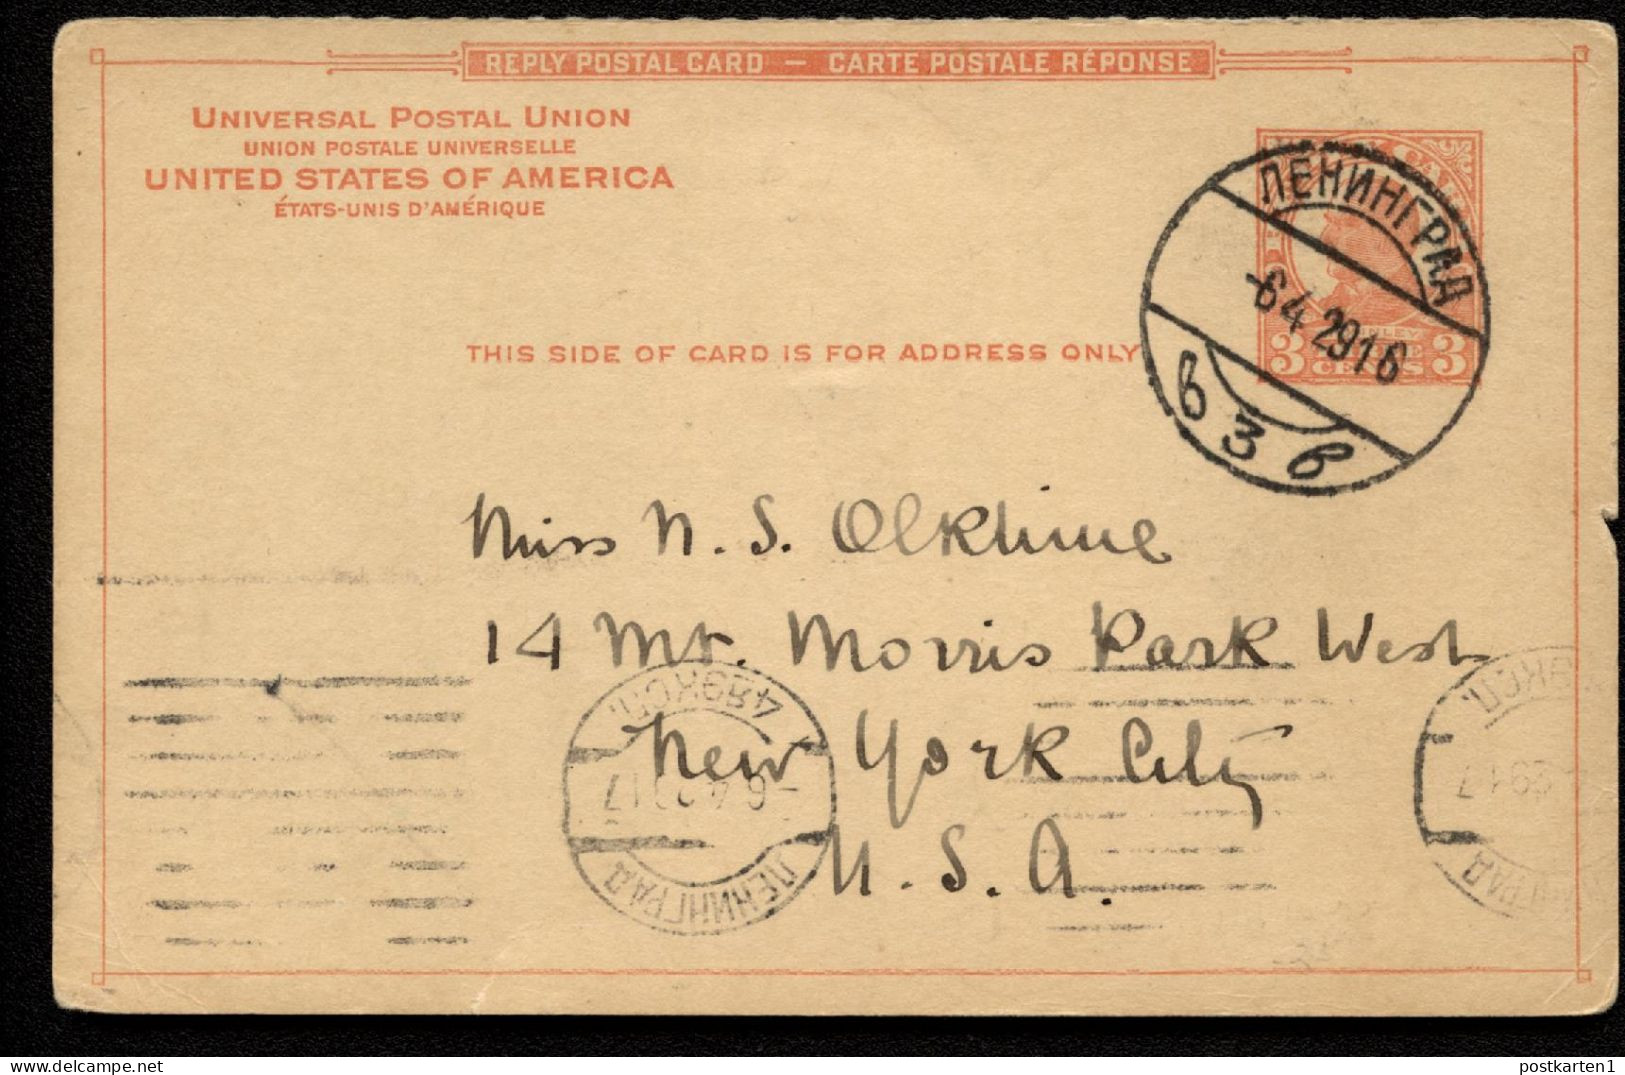 REPLY POSTAL CARD — CARTE POSTALE RÉPONSE
UNIVERSAL POSTAL UNION
UNION POSTALE UNIVERSELLE
UNITED STATES OF AMERICA
ÉTATS-UNIS D'AMÉRIQUE
ЛЕНИНГРАД
-6 4 29 16
в 3 в
3 CENTS 3
THIS SIDE OF CARD IS FOR ADDRESS ONLY
Miss N. S. Olkhine
14 Mt. Morris Park West
New York City
U. S. A.
4Я ЭКСП.
ЛЕНИНГРАД
ЭКСП.
postkarten1